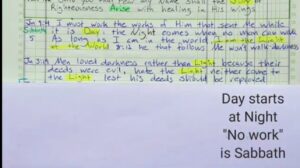 that fear My Name shall the Sun of
Righteousness Arise with Healing in His wings
Jn 9:4 I must work the works of Him that sent Me while
Sabbath it is Day the Night comes when no man can work
5 As long as I am in the world, I am the Light
of the World 8:12 he that follows Me won't walk darkness
Jn 3:19 Men loved darkness rather than Light because their
deeds were evil, hate the Light neither come to
the Light, lest his deeds should be reproved
Day starts
at Night
"No work"
is Sabbath